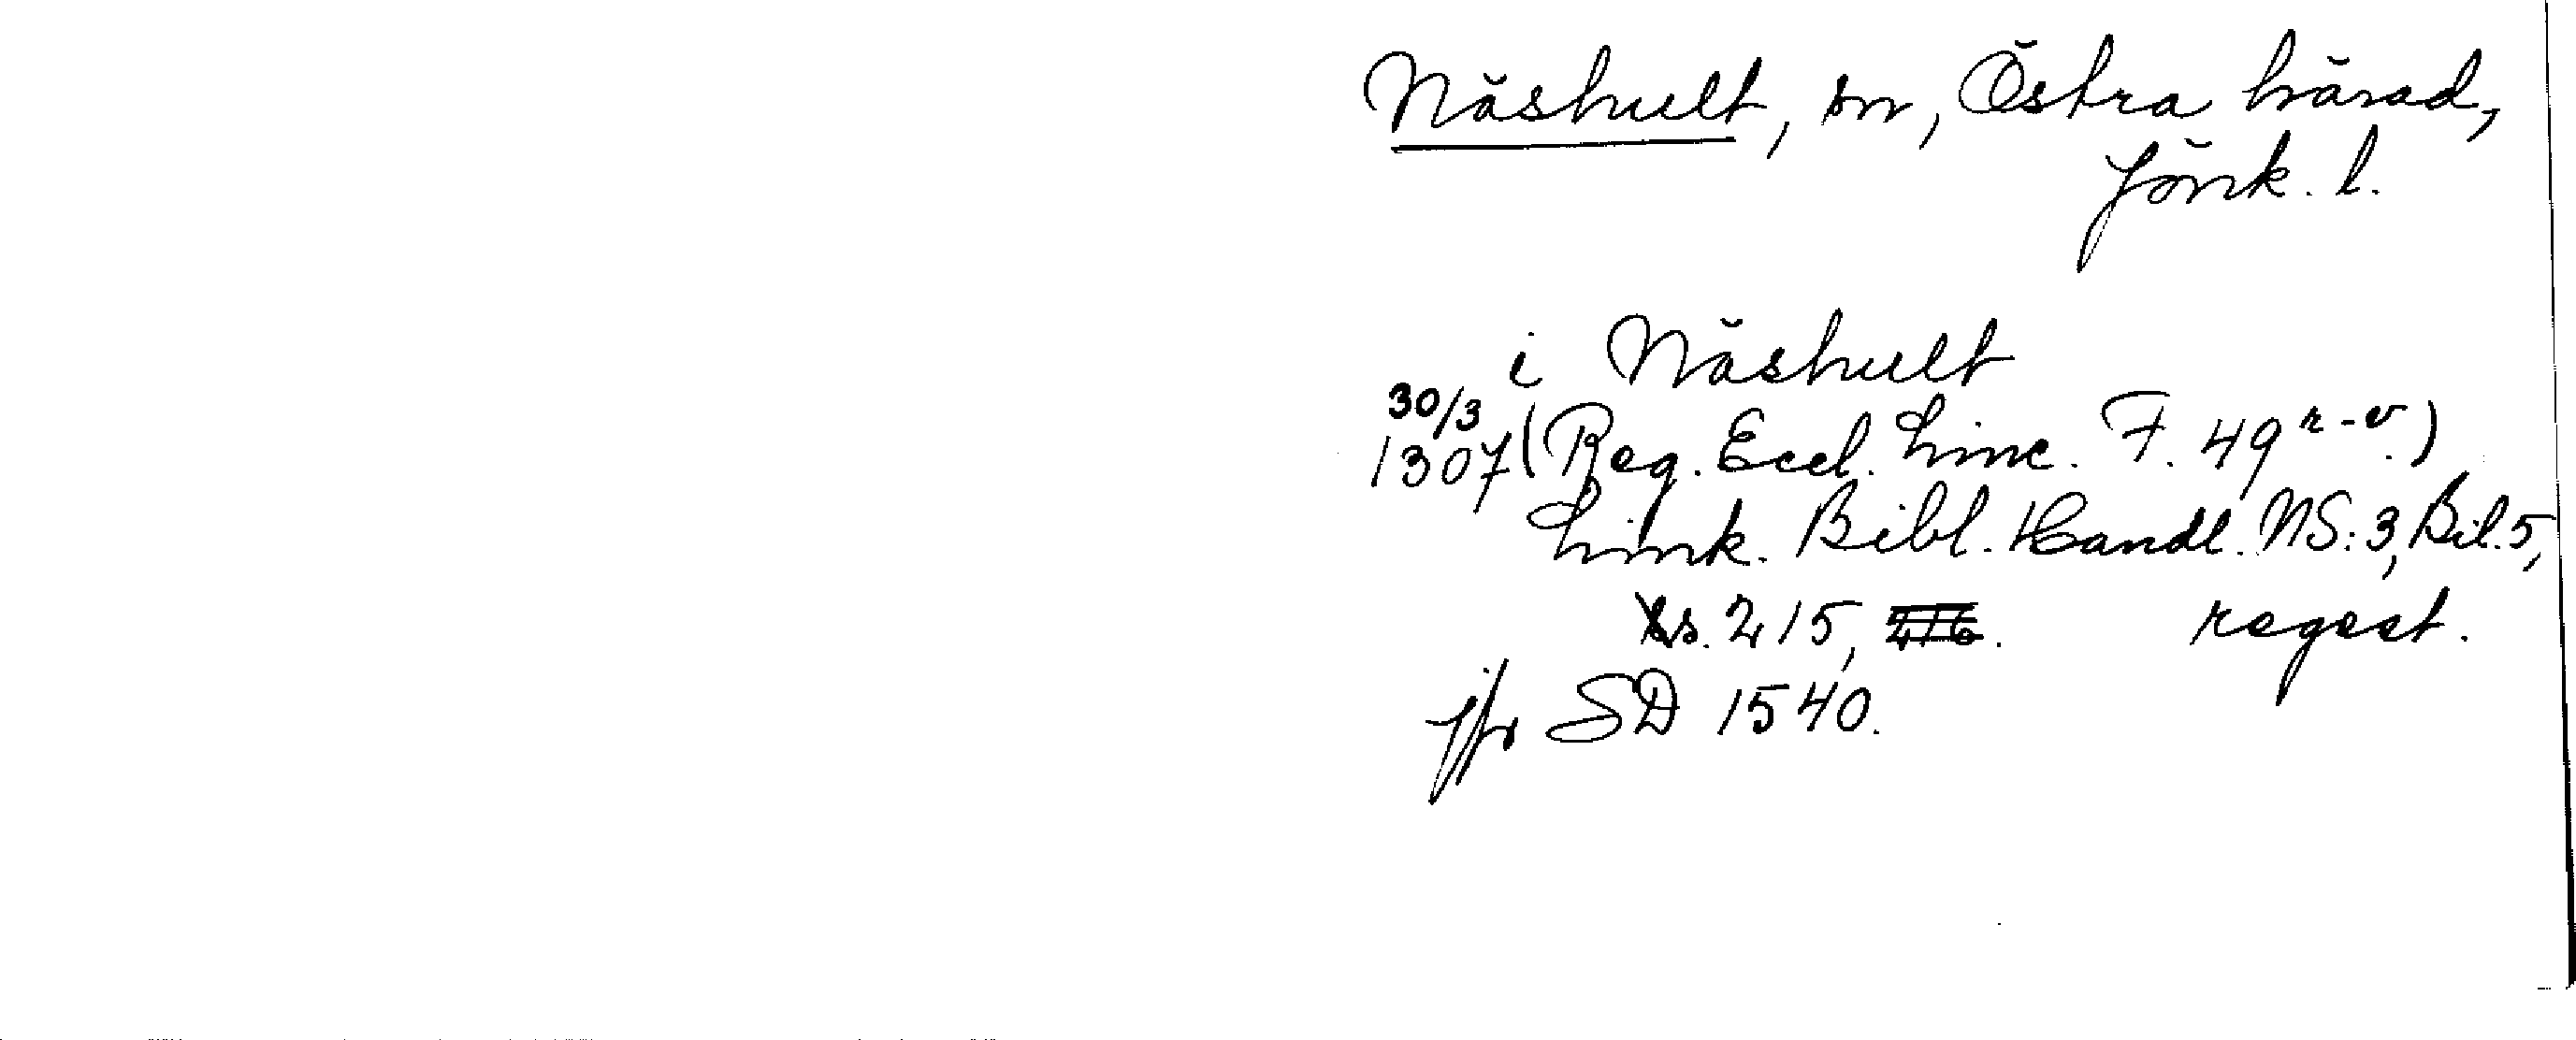 Näshult, sn, Östra härad,
Jönk. l.
i Näshult
30/3
1307 (Reg. Eccl. Linc. F. 49 r-v.)
Link. Bibl. Handl. NS: 3, Bil. 5,
s. 215, 216. regest.
jfr SD 1540.